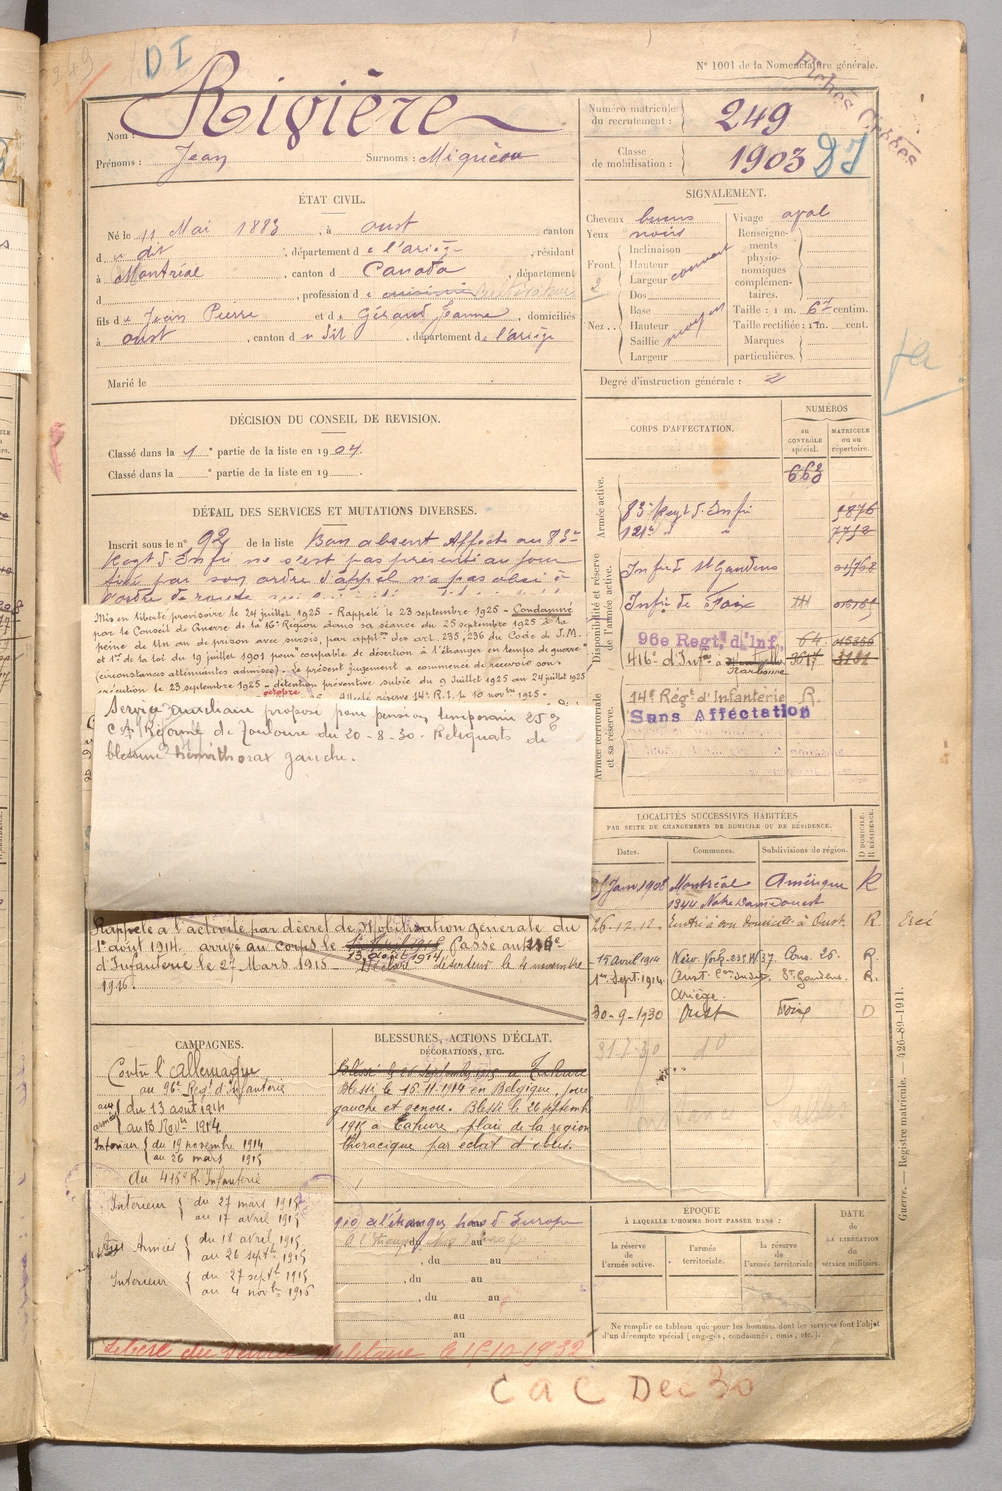 D I
N° 1001 de la Nomenclature générale.
Fiches Croisées
Nom : Rivière
Prénoms : Jean Surnoms : Miquéou
Numéro matricule du recrutement : 249
Classe de mobilisation : 1903
ÉTAT CIVIL.
Né le 11 Mai 1883, à oust canton
d u dit, département de l'ariège, résidant
à Montréal, canton d Canada, département
d , profession d Cultivateur
fils de Jean Pierre et de Géraud Jeanne, domiciliés
à oust, canton du dit, département de l'ariège
Marié le
SIGNALEMENT.
Cheveux bruns
Yeux noirs
Front. Inclinaison
Hauteur
Largeur
Dos
Nez. Base moyen
Hauteur
Saillie
Largeur
Visage oval
Renseignements physionomiques complémentaires.
Taille : 1 m. 67 centim.
Taille rectifiée : 1 m. cent.
Marques particulières.
Degré d'instruction générale : 2
DÉCISION DU CONSEIL DE REVISION.
Classé dans la 1e partie de la liste en 1904.
Classé dans la e partie de la liste en 19 .
DÉTAIL DES SERVICES ET MUTATIONS DIVERSES.
Inscrit sous le n° 92 de la liste Bon absent Affecté au 83e
Regt d'Infie ne s'est pas présenté au jour
fixé par son ordre d'appel n'a pas obéi à
l'ordre de route
Mis en liberté provisoire le 24 juillet 1925 - Rappelé le 23 septembre 1925 - Condamné
par le Conseil de Guerre de la 16e Région dans sa séance du 25 septembre 1925 à la
peine de Un an de prison avec sursis, par applon des art. 235, 236 du Code de J.M.
et 1er de la loi du 19 juillet 1901 pour "coupable de désertion à l'étranger en temps de guerre"
(circonstances atténuantes admises). Le présent jugement a commencé de recevoir son
exécution le 23 septembre 1925 - détention préventive subie du 9 Juillet 1925 au 24 juillet 1925
octobre
Affecté réserve 14e R.I. le 10 novbre 1925.
Service auxiliaire proposé pour pension temporaire 25%
C de Réforme de Toulouse du 20-8-30. Reliquats de
blessure hémithorax gauche.
Rappelé à l'activité par décret de Mobilisation générale du
1er août 1914, arrivé au corps le
13 août 1914. Passé au 416e
d'Infanterie le 27 Mars 1915 Déclaré déserteur le 4 novembre
1916.
CORPS D'AFFECTATION.
NUMÉROS
au CONTRÔLE spécial.
MATRICULE ou au répertoire.
Armée active.
662
83e Regt d'Infie 5876
121e " " 7752
Disponibilité et réserve de l'armée active.
Infie de St Gaudens
Infie de Foix
96e Regt. d'Inf. 64
416e d'Infie à Narbonne
Armée territoriale et sa réserve.
14e Rég.t d'Infanterie R.
Sans Affectation
LOCALITÉS SUCCESSIVES HABITÉES
PAR SUITE DE CHANGEMENTS DE DOMICILE OU DE RÉSIDENCE.
Dates. Communes. Subdivisions de région. D DOMICILE. R RÉSIDENCE.
Jan 1908 Montréal Amérique R
1944 Notre Dame Ouest
26.12.12. Rentré à son domicile à Oust. R Ercé
15 avril 1914 New York 255 W 37 Cons. 25. R.
1er Sept. 1914. Oust St Gaudens. R.
Ariège.
30-9-1930 Oust Foix D
31-7-30 do
CAMPAGNES.
Contre l'allemagne
au 96e Regt d'Infanterie
aux armées du 13 aout 1914
au 18 Novre 1914.
Intérieur du 19 novembre 1914
au 26 mars 1915
au 416e R. Infanterie
Intérieur du 27 mars 1915
au 17 avril 1915
aux Armées du 18 avril 1915
au 26 septbre 1915
Intérieur du 27 septbre 1915
au 4 novbre 1916
à l'étranger hors d'Europe
du au
, du au
, du au
, du au
au
au
BLESSURES, ACTIONS D'ÉCLAT.
DÉCORATIONS, ETC.
Blessé le 26 septembre 1915 à Tahure
Blessé le 15.11.1914 en Belgique, joue
gauche et genou. Blessé le 26 septemb
1915 à Tahure, plaie de la région
thoracique par éclat d'obus.
ÉPOQUE
À LAQUELLE L'HOMME DOIT PASSER DANS :
la réserve de l'armée active.
l'armée territoriale.
la réserve de l'armée territoriale
DATE de LA LIBÉRATION du service militaire.
Ne remplir ce tableau que pour les hommes dont les services font l'objet
d'un décompte spécial (engagés, condamnés, omis, etc.).
Guerre. — Registre matricule. — 426-89-1911.
Libéré du Service Militaire le 15-10-1932
C a C Dec 30